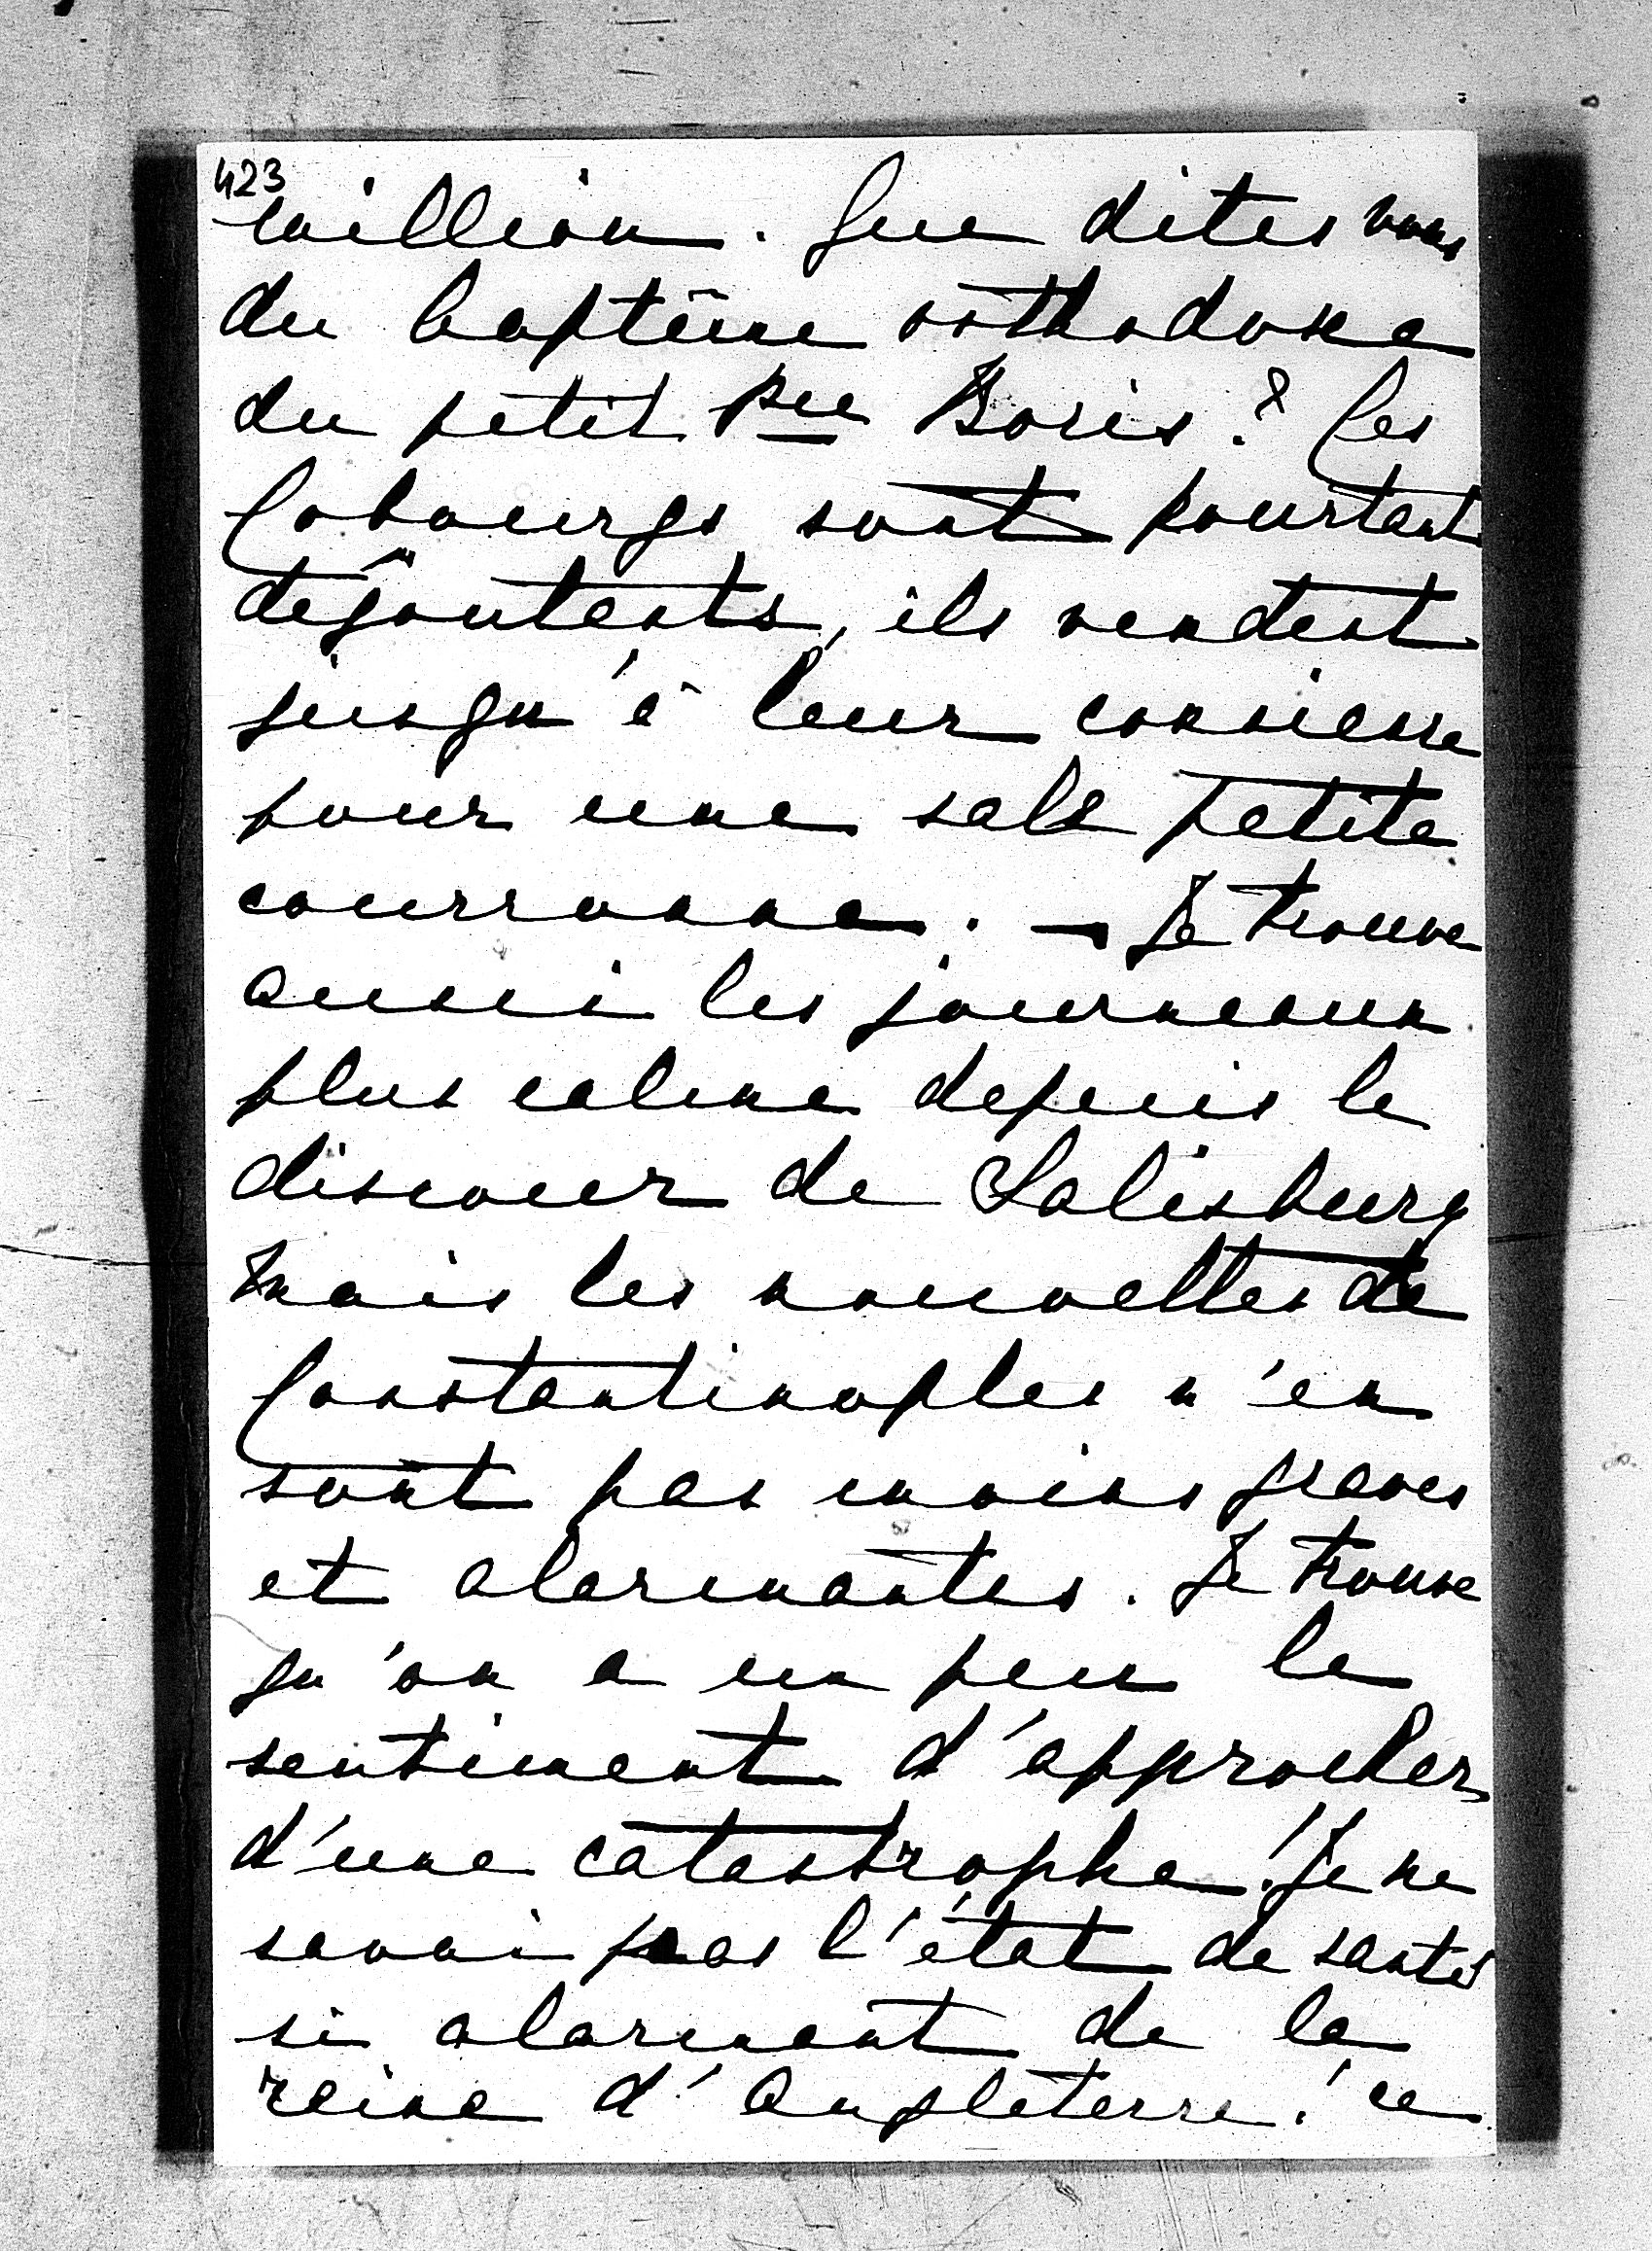 423
million. Que dites vous
du baptême orthodoxe
du petit Pce Boris? Les
Cobourgs sont pourtant
dégoutents, ils vendent
jusqu'à leur consience
pour une sale petite
courronne. — Je trouve
aussi les journeaux
plus calme depuis le
discour de Salisbury
mais les nouvelles de
Constantinoples n'en
sont pas moins graves
et alarmantes. Je trouve
qu'on a un peu le
sentiment d'approcher
d'une catastrophe! Je ne
savai pas l'état de santé
si alarmant de la
reine d'Angleterre! ce